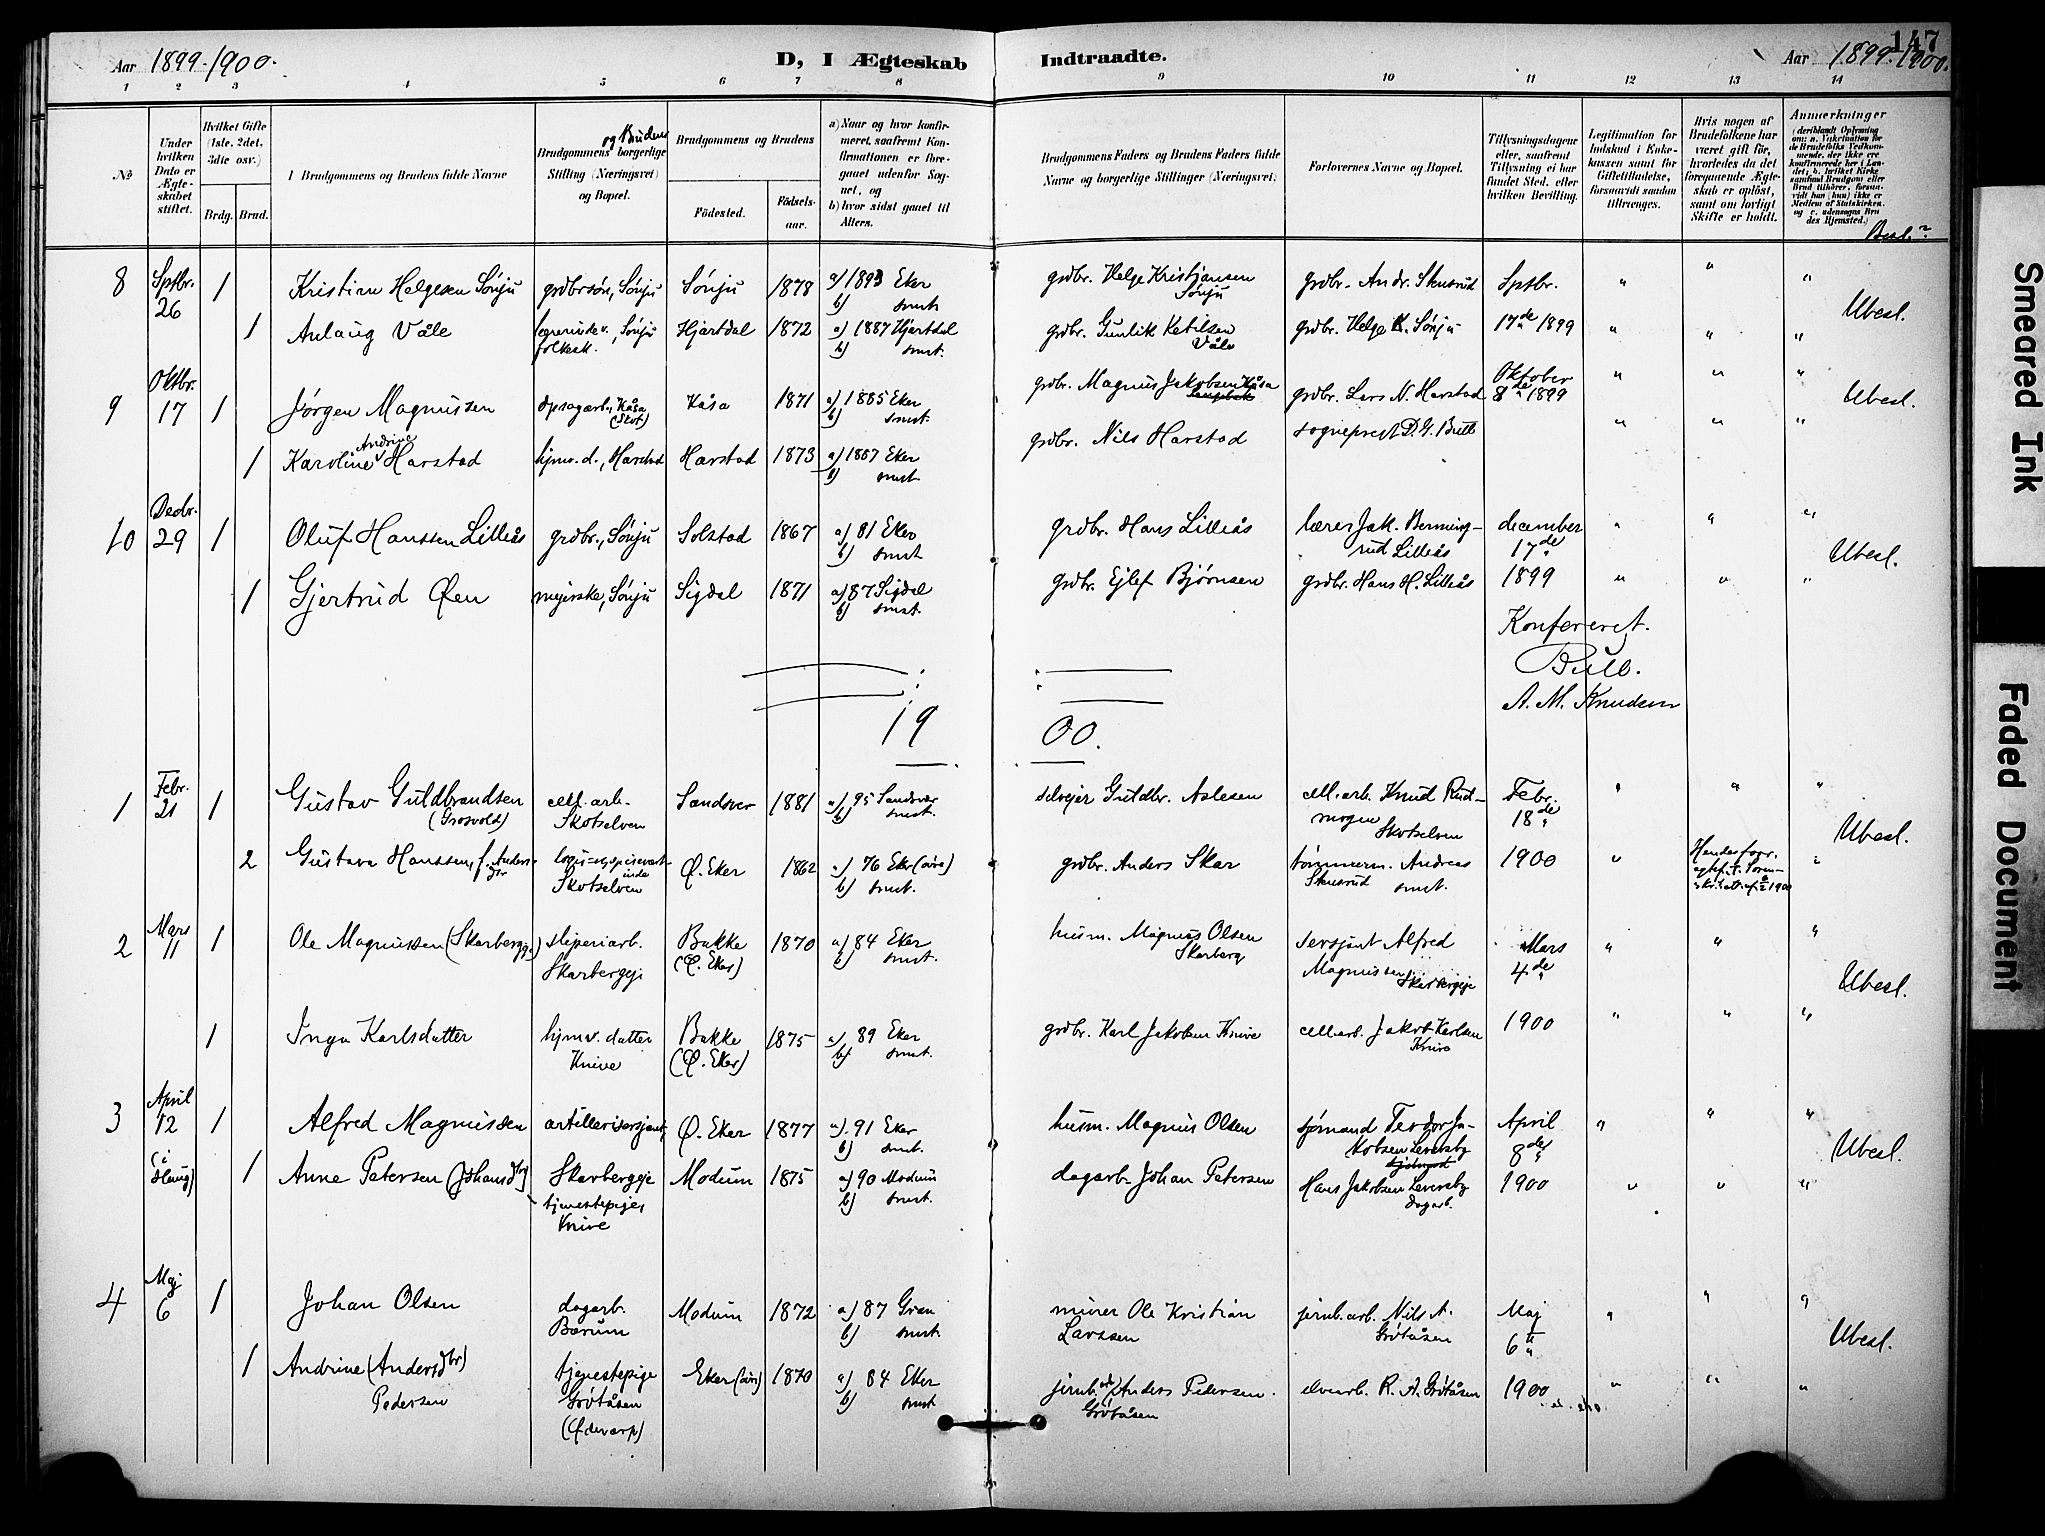 147
Aar 1899-1900. D, I Ægteskab Indtraadte. Aar 1899-1900.
1 2 3 4 5 6 7 8 9 10 11 12 13 14
№
Under hvilken Dato er Ægteskabet stiftet.
Hvilket Gifte (1ste, 2det, 3die osv.)
Brdg. Brud.
Brudgommens og Brudens fulde Navne
Brudgommens og Brudens borgerlige Stilling (Næringsvei) og Bopæl.
Brudgommens og Brudens
Födested. Födsels-aar.
a) Naar og hvor konfirmeret, saafremt Konfirmationen er foregaaet udenfor Sognet, og
b) hvor sidst gaaet til Alters.
Brudgommens Faders og Brudens Faders fulde Navne og borgerlige Stillinger (Næringsvei)
Forlovernes Navne og Bopæl.
Tillysningsdagene eller, saafremt Tillysning ei har fundet Sted, efter hvilken Bevilling.
Legitimation for Indskud i Enkekassen samt for Giftetilladelse, forsaavidt saadan tiltrænges.
Hvis nogen af Brudefolkene har været gift för, hvorledes da det foregaaende Ægteskab er oplöst, samt om lovligt Skifte er holdt.
Anmerkninger
(deriblandt Oplysning om: a. Vakcination for de Brudefolks Vedkommende, der ikke ere konfirmerede her i Landet; b. hvilket Kirkesamfund Brudgom eller Brud tilhörer, forsaavidt han (hun) ikke er Medlem af Statskirken, og c. udensogns Brudes Hjemsted.)
Besl.?
8 Sptbr. 26 1 Kristian Helgesen Sønju grdbrsøn, Sønju Sønju 1878 a) 1893 Eker b) smst. grdbr. Helge Kristjansen Sønju grdbr. Andr. Skusrud Sptbr. " " "
1 Anlaug Våle lærerinde v. Sønju folkesk. Hjartdal 1872 a) 1887 Hjartdal b) smst. grdbr. Gunlik Ketilsen Våle grdbr. Helge K. Sønju 17de 1899 " " " Ubesl.
9 Oktbr. 17 1 Jørgen Magnussen dpsagarb., Kåsa (Skot) Kåsa 1871 a) 1885 Eker b) smst. grdbr. Magnus Jakobsen Kåsa grdbr. Lars N. Harstad Oktober 8de 1899 " " " Ubesl.
1 Karoline Andrine Harstad hjmv. d., Harstad Harstad 1873 a) 1887 Eker b) smst. grdbr. Nils Harstad sogneprest D. G. Bull " " "
10 Decbr. 29 1 Oluf Hanssen Lilleås grdbr., Sønju Solstad 1867 a) 81 Eker b) smst grdbr. Hans Lilleås lærer Jak. Berming-rud Lilleås december 17de " " " Ubesl.
1 Gjertrud Øen mejerske, Sønju Sigdal 1871 a) 87 Sigdal b) smst. grdbr. Ejlef Bjørnsen grdbr. Hans H. Lilleås 1899 " " "
Konfereret.
Bull.
A. M. Knudsen
19 00.
1 Febr. 21 1 Gustav Guldbrandsen (Grosvold) cell. arb. Skotselven Sandsver 1881 a) 95 Sandsvær b) smst. selvejer Guldbr. Aslesen cell. arb. Knud Rud-mogen Skotselven Febr. 18de " " " Ubesl.
2 Gustava Hanssen, f. Andersdtr Skotselven Ø. Eker 1862 a) 76 Eker (øvre) b) smst. grdbr. Anders Skar tømmerm. Andreas Skusrud smst. 1900 " Hendes forr.
2 Mars 11 1 Ole Magnussen (Skarbergeje) sliperiarb. Skarbergeje Bakke (Ø. Eker) 1870 a) 84 Eker b) smst. husm. Magnus Olsen Skarberg sersjant Alfred Magnussen Skarbergeje Mars 4de " " " Ubesl.
1 Inga Karlsdatter hjmv. datter Knive Bakke (Ø. Eker) 1875 a) 89 Eker b) smst. grdbr. Karl Jakobsen Knive cell. arb. Jakob Karlsen Knive 1900 " " "
3 April 12 (i Haug) 1 Alfred Magnussen artillerisersjant, Skarbergeje Ø. Eker 1877 a) 91 Eker b) smst. husm. Magnus Olsen sjømand Teodor Ja-kobsen Leversby April 8de " " " Ubesl.
1 Anne Petersen (Johansdtr) tjenestepige, Knive Modum 1875 a) 90 Modum b) smst. dagarb. Johan Petersen Hans Jakobsen Leversby dagarb. 1900 " " "
4 Maj 6 1 Johan Olsen dagarb. Bærum Modum 1872 a) 87 Gran b) smst. murer Ole Kristian Larssen jernb. arb. Nils A. Grøtåsen Maj 6te " " " Ubesl.
1 Andrine (Andersdtr) Pedersen tjenestepige Grøtåsen Eker (øvre) 1870 a) 84 Eker b) smst jernb. arb. Anders Pedersen Grøtåsen elvearb. R. A. Grøtåsen 1900 " " "
Smeared Ink
Faded Document